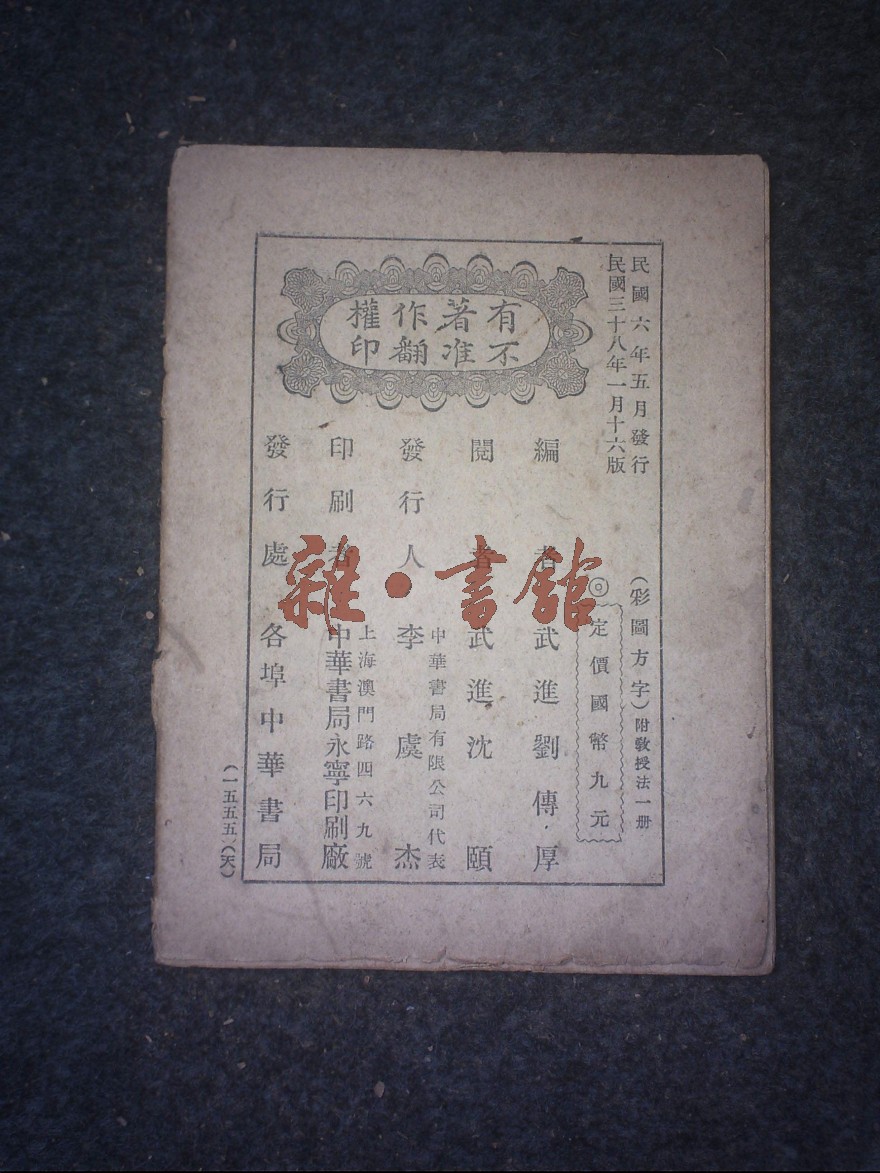 民國六年五月發行
民國三十八年一月十六版
(彩圖方字)附教授法一册
◎定價國幣九元
有著作權
不准翻印
編者武進劉傳厚
閱者武進沈頤
發行人
中華書局有限公司代表
李虞杰
印刷者
上海澳門路四六九號
中華書局永寧印刷廠
發行處各埠中華書局
(一五五五)(天)
雜·書館